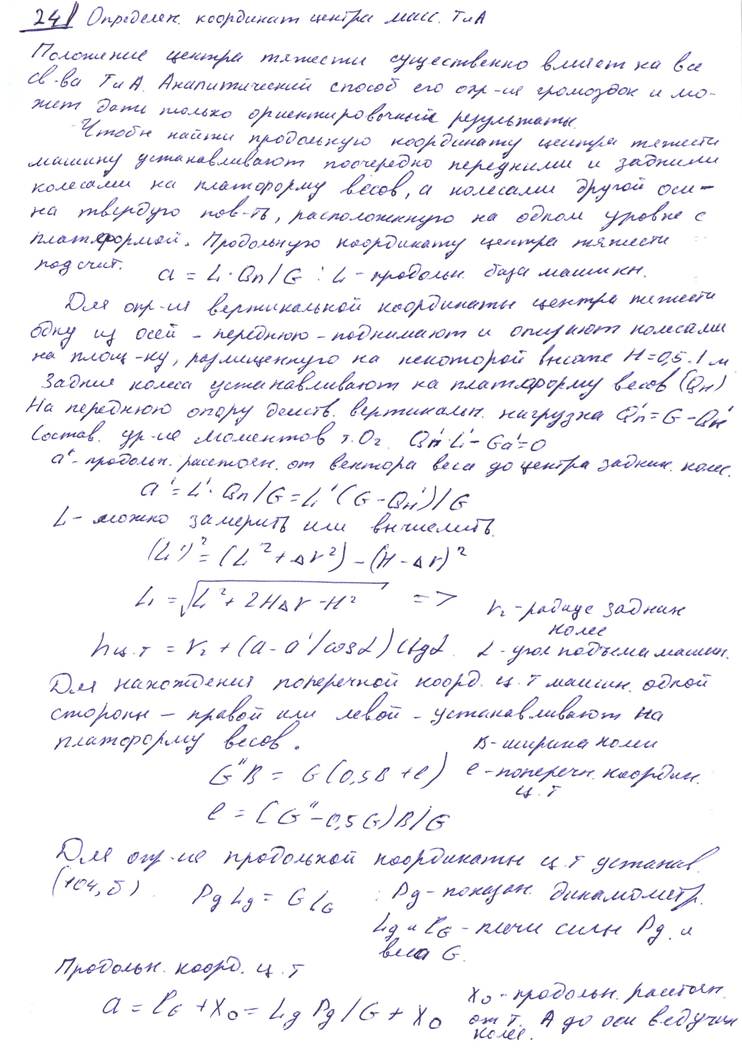 24) Определен. координат центра масс. ТиА
Положение центра тяжести существенно влияет на все
св-ва ТиА. Аналитический способ его опр-ия громоздок и мо-
жет дать только ориентировочный результаты.
Чтобы найти продольную координату центра тяжести
машину устанавливают поочередно передними и задними
колесами на платформу весов, а колесами другой оси -
на твердую пов-ть, расположенную на одном уровне с
платформой. Продольную координату центра тяжести
подсчит. a = L · Qп / G : L - продольн. база машины.
Для опр-ия вертикальной координаты центра тяжести
одну из осей - переднюю - поднимают и опускают колесами
на площ-ку, размещенную на некоторой высоте H=0,5-1 м
Задние колеса устанавливают на платформу весов (Qн)
На переднюю опору действ. вертикальн. нагрузка Q'п = G - Qн'
Состав. ур-ие моментов т. O2. Qп' L' - Ga' = 0
a' - продольн. расстоян. от вектора веса до центра задних. колес.
a' = L' · Qп / G = L' (G - Qн') / G
L - можно замерить или вычислить.
(L')² = (L² + Δr²) - (H - Δr)²
L₁ = √L² + 2HΔr - H² =>
r₂ - радиус задних
колес
hц.т = r₂ + (a - a' / cosα) ctgα. α - угол подъема машин.
Для нахождения поперечной коорд. ц.т машин. одной
стороны - правой или левой - устанавливают на
платформу весов.
B - ширина колеи
G"B = G (0,5B + e) e - поперечн. координ.
ц.т
e = (G" - 0,5G) B / G
Для опр-ие продольной координаты ц.т устанав.
(104, б). Pg Lg = G lG : Pg - показан. динамометр.
Lg и lG - плечи силы Pg и
веса G.
Продольн. коорд. ц.т
a = lG + X₀ = Lg Pg / G + X₀
X₀ - продольн. расстоян.
от т. A до оси ведущих
колес.